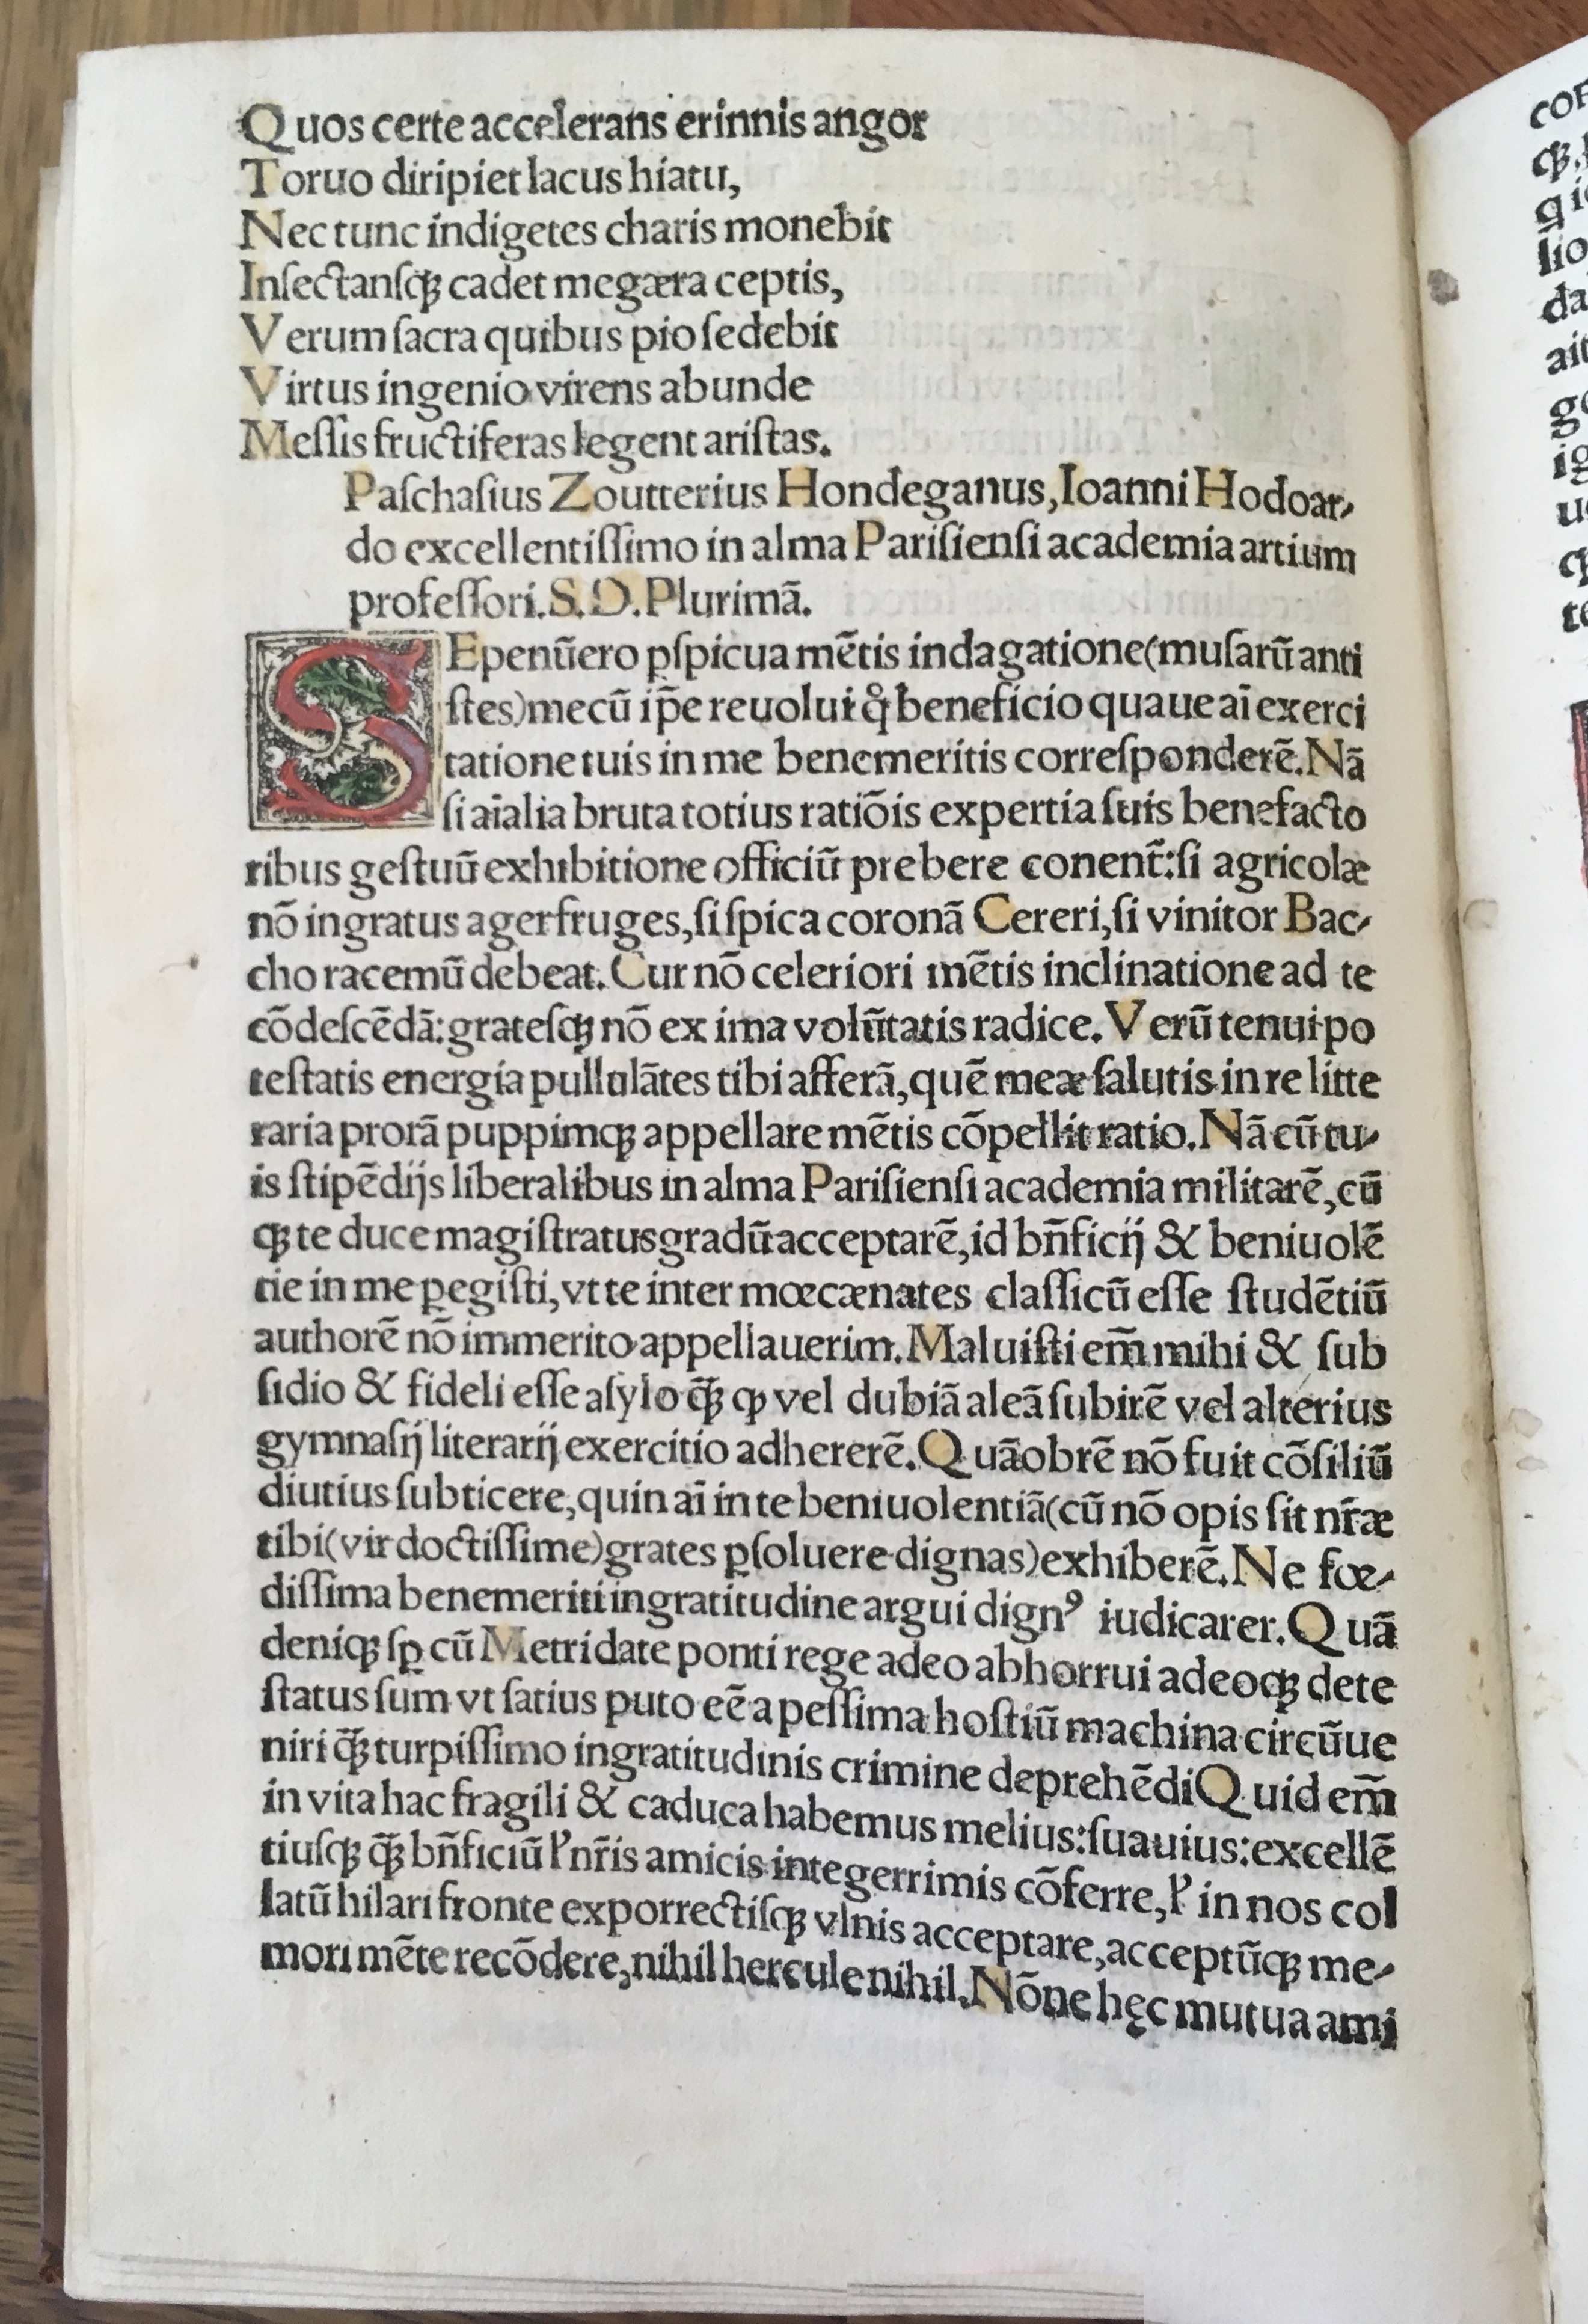 Quos certe accelerans erinnis angor
Toruo diripiet lacus hiatu,
Nec tunc indigetes charis monebit
Inſectanſqꝫ cadet megæra ceptis,
Verum ſacra quibus pio ſedebit
Virtus ingenio virens abunde
Meſſis fructiferas legent ariſtas.
Paſchaſius Zoutterius Hondeganus, Ioanni Hodoar-
do excellentiſſimo in alma Pariſienſi academia artium
profeſſori. S. D. Plurimā.
SEpenūero ꝑſpicua mētis indagatione (muſarū anti
ſtes) mecū ip̄e reuolui qͦ beneficio quaue aī exerci
tatione tuis in me benemeritis correſponderē. Nā
ſi aīalia bruta totius ratiōis expertia ſuis benefacto
ribus geſtuū exhibitione officiū prebere conent̄: ſi agricolæ
nō ingratus ager fruges, ſi ſpica coronā Cereri, ſi vinitor Bac-
cho racemū debeat. Cur nō celeriori mētis inclinatione ad te
cōdeſcēdā: grateſqꝫ nō ex ima volūtatis radice. Verū tenui po
teſtatis energia pullulātes tibi afferā, quē meæ ſalutis in re litte
raria prorā puppimqꝫ appellare mētis cōpellit ratio. Nā cū tu-
is ſtipēdijs liberalibus in alma Pariſienſi academia militarē, cū
qꝫ te duce magiſtratus gradū acceptarē, id bn̄ficij & beniuolē
tie in me ꝑegiſti, vt te inter mœcænates claſſicū eſſe ſtudētiū
authorē nō immerito appellauerim. Maluiſti em̄ mihi & ſub
ſidio & fideli eſſe aſylo qꝫ̄ ꝙ vel dubiā aleā ſubirē vel alterius
gymnaſij literarij exercitio adhererē. Quāobrē nō fuit cōſiliū
diutius ſubticere, quin aī in te beniuolentiā (cū nō opis ſit nr̄æ
tibi (vir doctiſſime) grates ꝑſoluere dignas) exhiberē. Ne fœ-
diſſima benemeriti ingratitudine argui dignꝰ iudicarer. Quā
deniqꝫ ſꝑ cū Metridate ponti rege adeo abhorrui adeoqꝫ dete
ſtatus ſum vt ſatius puto eē a peſſima hoſtiū machina circūue
niri qꝫ̄ turpiſſimo ingratitudinis crimine deprehēdi Quid em̄
in vita hac fragili & caduca habemus melius: ſuauius: excellē
tiuſqꝫ qꝫ̄ bn̄ficiū ꝉ nr̄is amicis integerrimis cōferre, ꝉ in nos col
latū hilari fronte exporrectiſqꝫ vlnis acceptare, acceptūqꝫ me-
mori mēte recōdere, nihil hercule nihil. Nōne hęc mutua ami